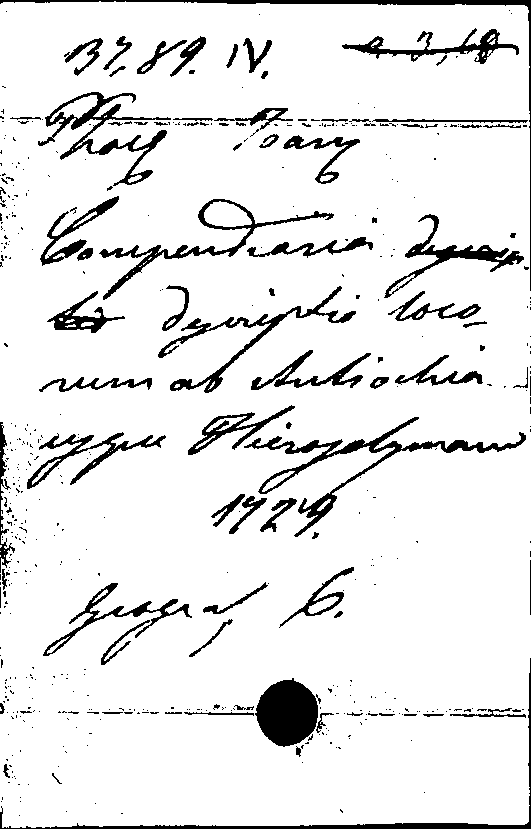 B7.89. IV. e 3,18
Phocas Joan
Compendiaria descrip
tio descriptio loco-
rum ab Antiochia
usque Hierosolymam
1729.
Geogr. 6.